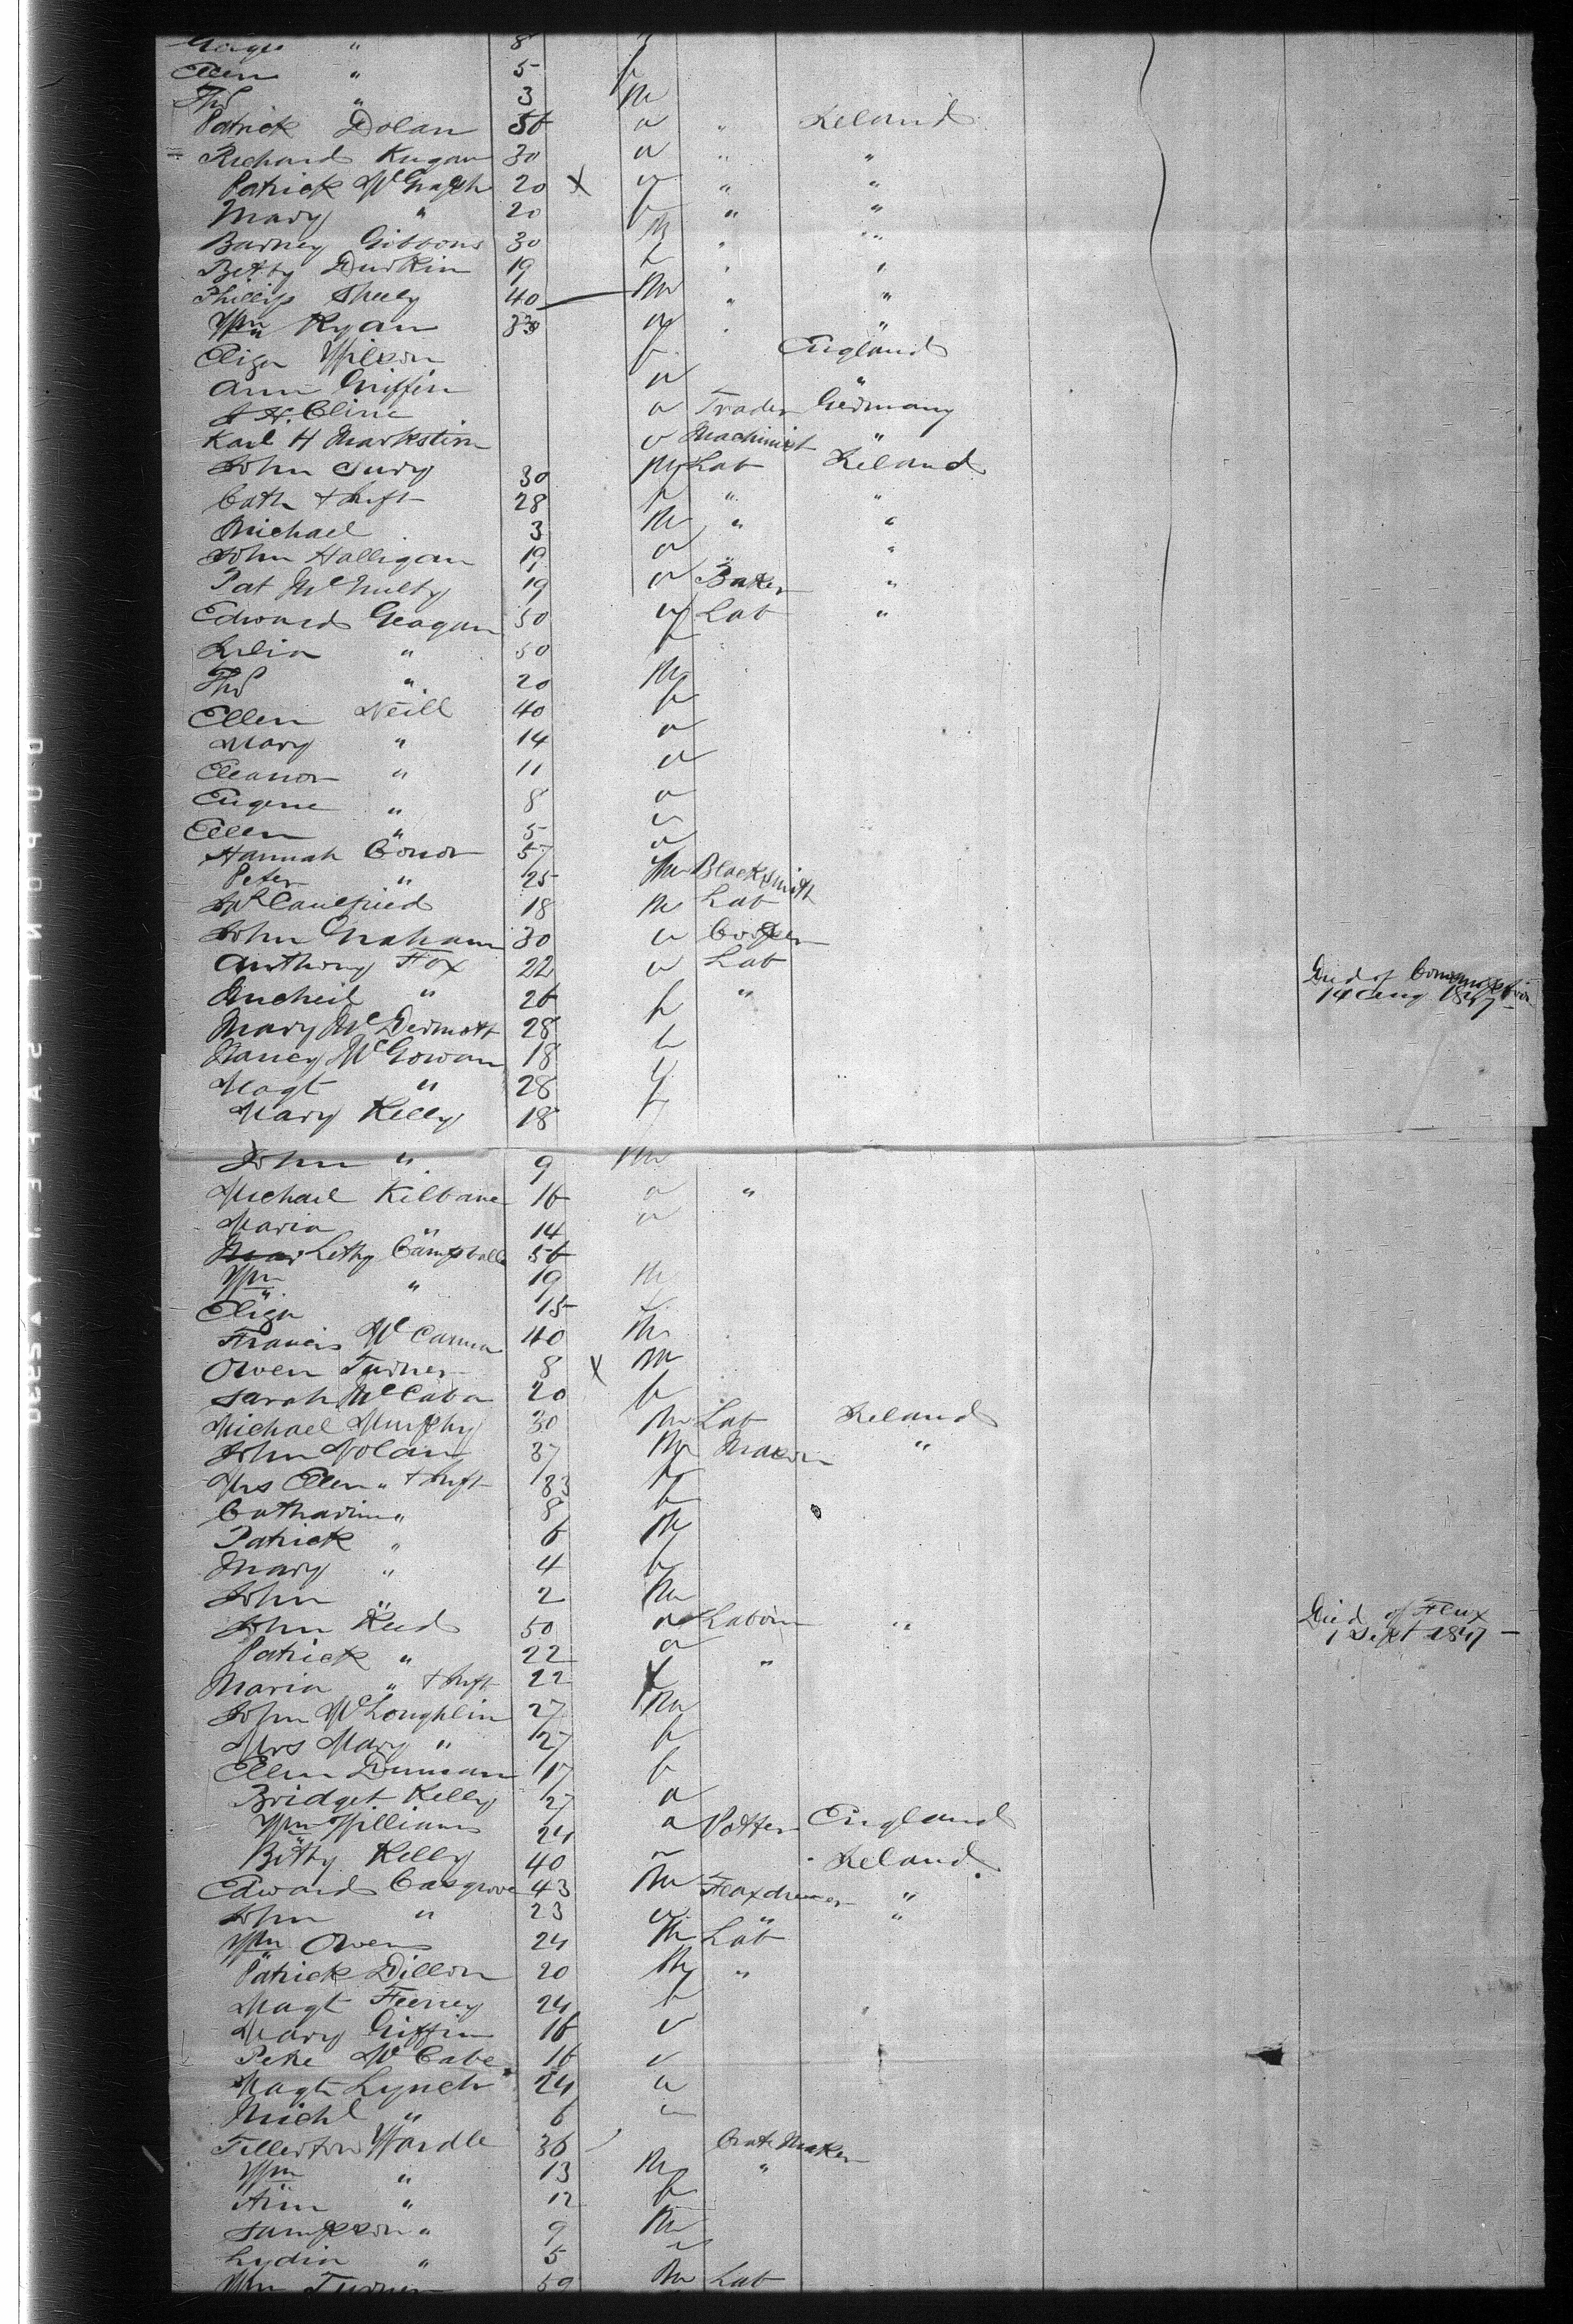 " 8
Ellen " 5 f
Thos " 3 m
Patrick Dolan 56 " " Ireland
Richard 30 " " "
Patrick McGragh 20 X " " "
Mary " 20 f " "
Barney Gibbons 30 m " "
Betty Durkin 19 f " "
Phillip Sheely 40 m " "
Wm Ryan " " "
Eliza Wilson f England
Ann Griffin " "
J H. Cline " Trader Germany
Karl H Markstim " Machinist "
John Cury 30 m Lab Ireland
Cath + Inft 28 f " "
Michael 3 m " "
John Halligan 19 " " "
Pat McNulty 19 " Baker "
Edward Geagan 50 " Lab "
Julia " 50 f
Thos " 20 m
Ellen Neill 40 f
Mary " 14 "
Eleanor " 11 "
Eugene " 8 "
Ellen " 5 "
Hannah Conor 57 "
Peter " 25 m Blacksmith
Caulfield 18 m Lab
John Graham 30 " Cooper
Anthony Fox 22 " Lab Died of Consumption
14 Aug 1847
" 26 f "
Mary McDermott 28 f
Nancy McGowan 18 f
Magt " 28 f
Mary Kelly 18 f
John " 9 m
Michael Kilbane 16 " "
Maria " 14 "
Letty Campbell 56
Wm " 19 m
Eliza " 15 f
Francis McCanna 40 m
Owen Turner 8 X m
Sarah McCabe 20 f
Michael Murphy 30 m Lab Ireland
John Nolan 37 m Mason "
Mrs Ellen " + Inft 33 f
Catharine " 8 f
Patrick " 6 m
Mary " 4 f
John " 2 m
John Reed 50 " Laborer " Died of Flux
1 Sept 1847
Patrick " 22 " "
Maria " + Inft 22 f
John McLoughlin 27 m
Mrs Mary " 27 f
Ellen Dunnan 17 f
Bridget Kelly 27 "
Wm Williams 24 " Potter England
Betty Kelly 40 " Ireland
Edward Casgrove 43 m Flaxdresser "
John " 23 " " "
Wm Owens 24 m Lab
Patrick Dillon 20 m "
Magt Feeney 24 f
Mary Griffin 16 "
Peke McCabe 16 "
Magt Lynch 24 "
Michl " 6 "
Tellerton Wardle 36 Crate Maker
Wm " 13 m "
Ann " 12 f
Sampson " 9 m
Lydia " 5 f
Wm Turner 59 m Lab